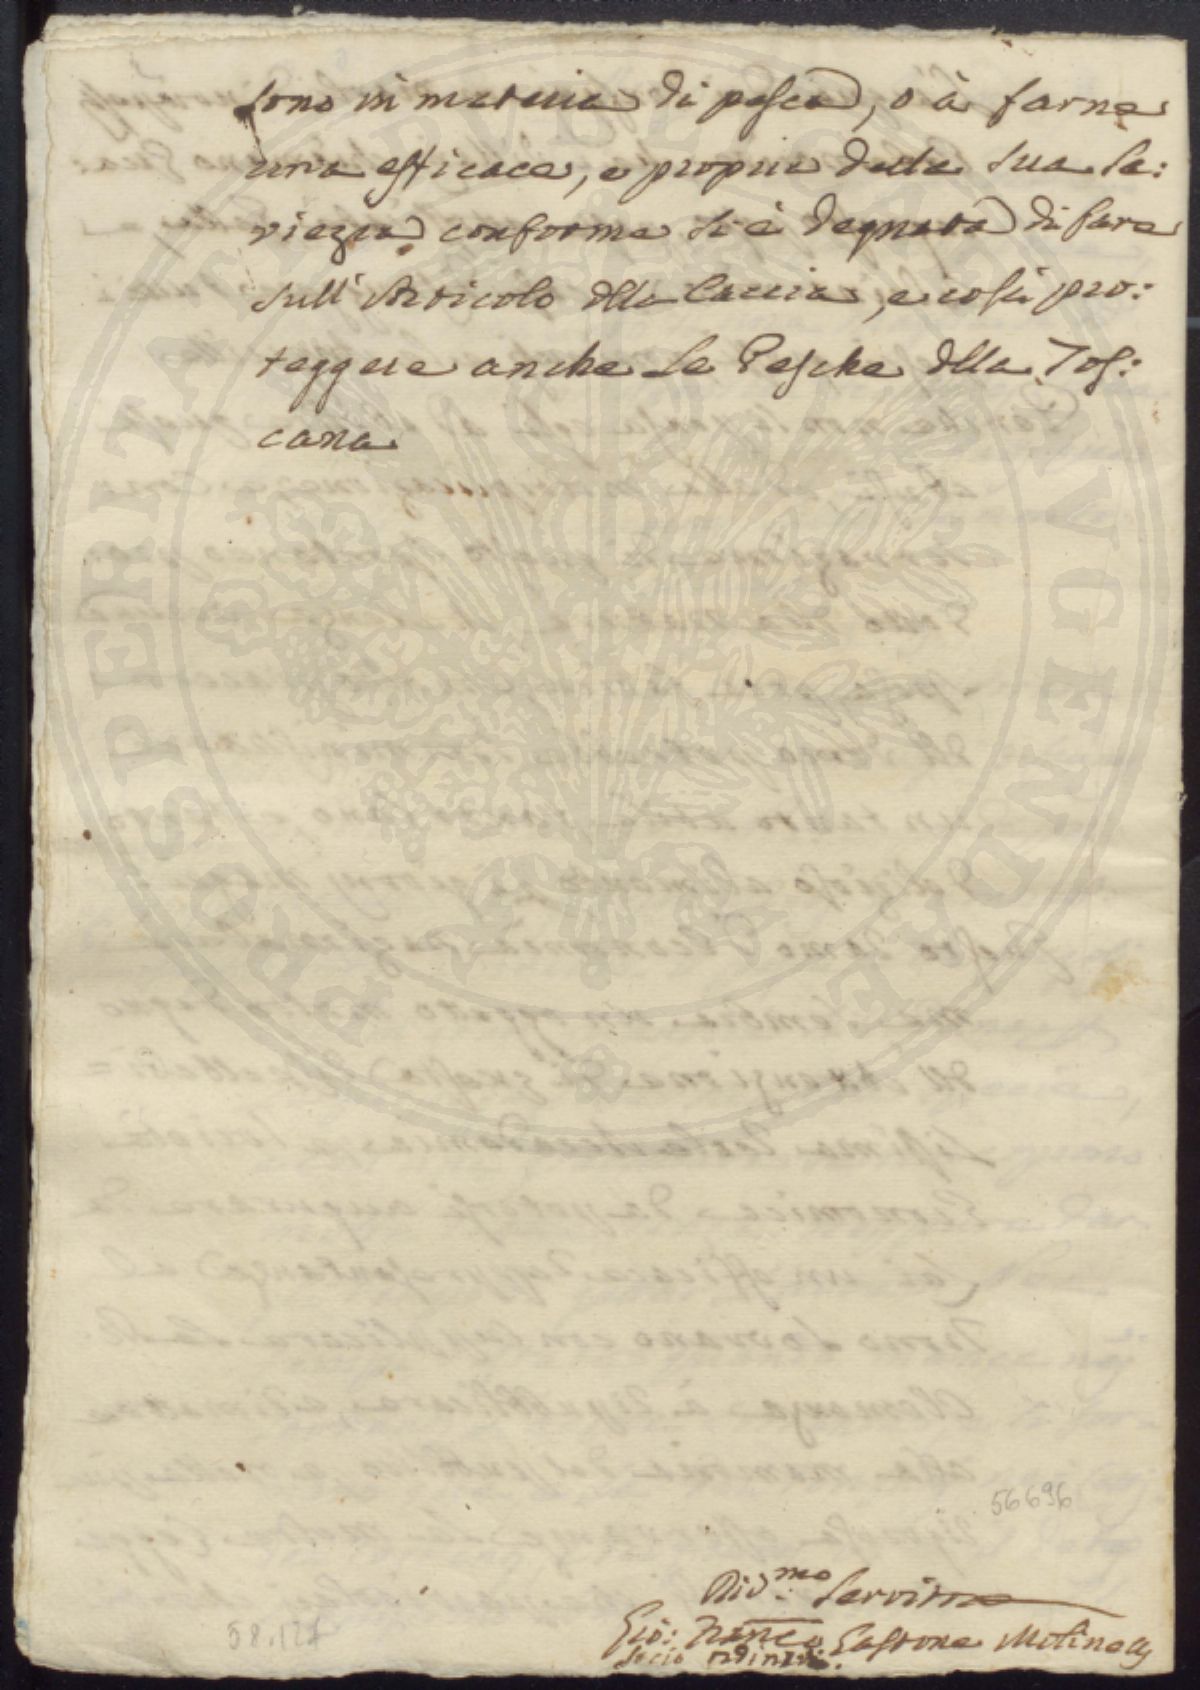 sono in materia di pesca, o à farne
una efficace, e propria della sua sa:
viezza conforme si è degnata di fare
sull' Articolo dlla Caccia, e così pro:
teggere anche le Pesche dlla Tos:
cana
56696
Div.mo Servitore
Gio: Franco Gastone Molinelli
Socio ordin.rio
58.127
PROSPERITATI PVBLICAE AVGENDAE